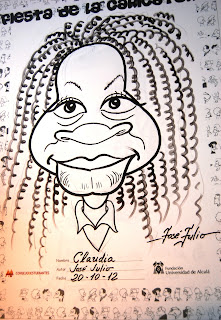 FIESTA DE LA CARICATURA
José Julio
Nombre: Claudia
Autor: José Julio
Fecha: 20-10-12
Fundación
Universidad de Alcalá